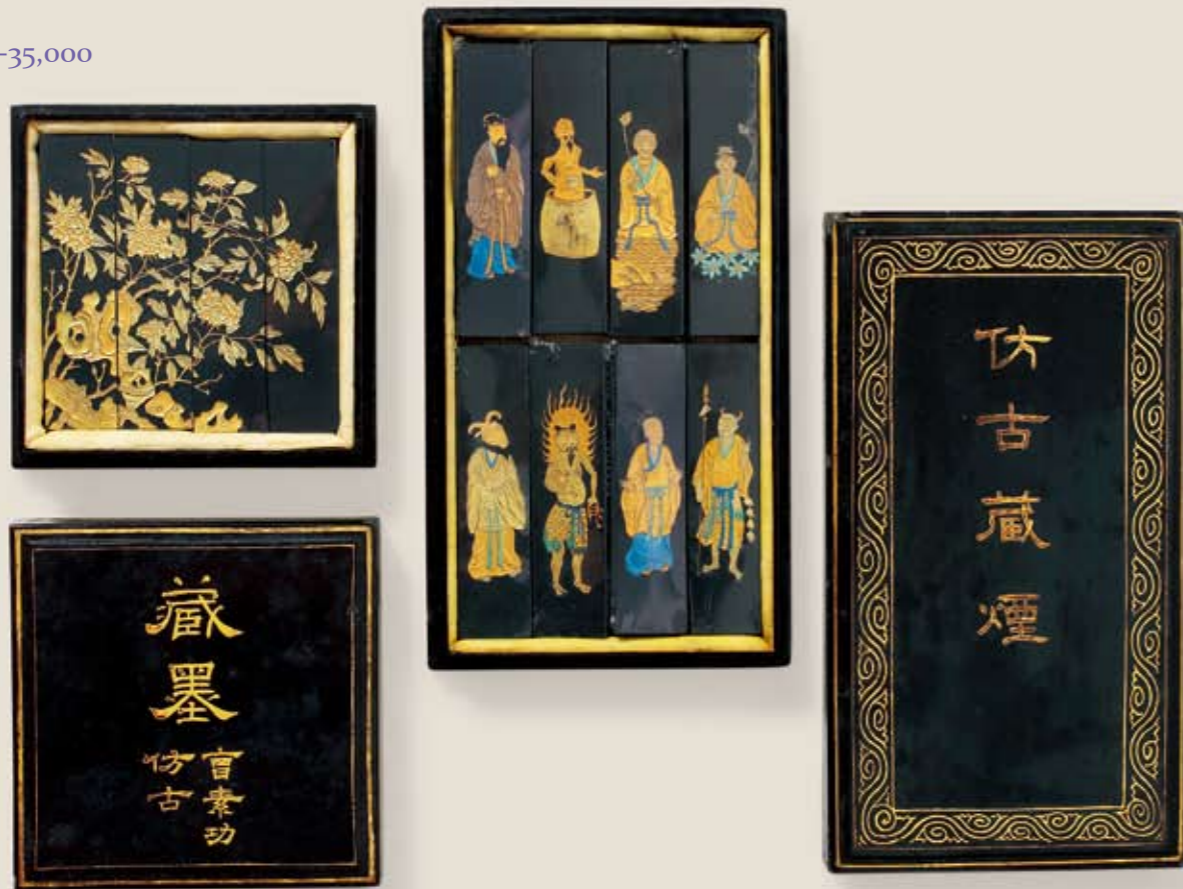 -35,000
藏墨
曹素功
仿古
仿古藏煙